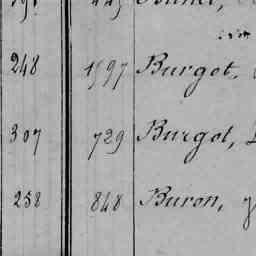 248 1597 Burgot,
307 729 Burgot,
258 848 Buron,